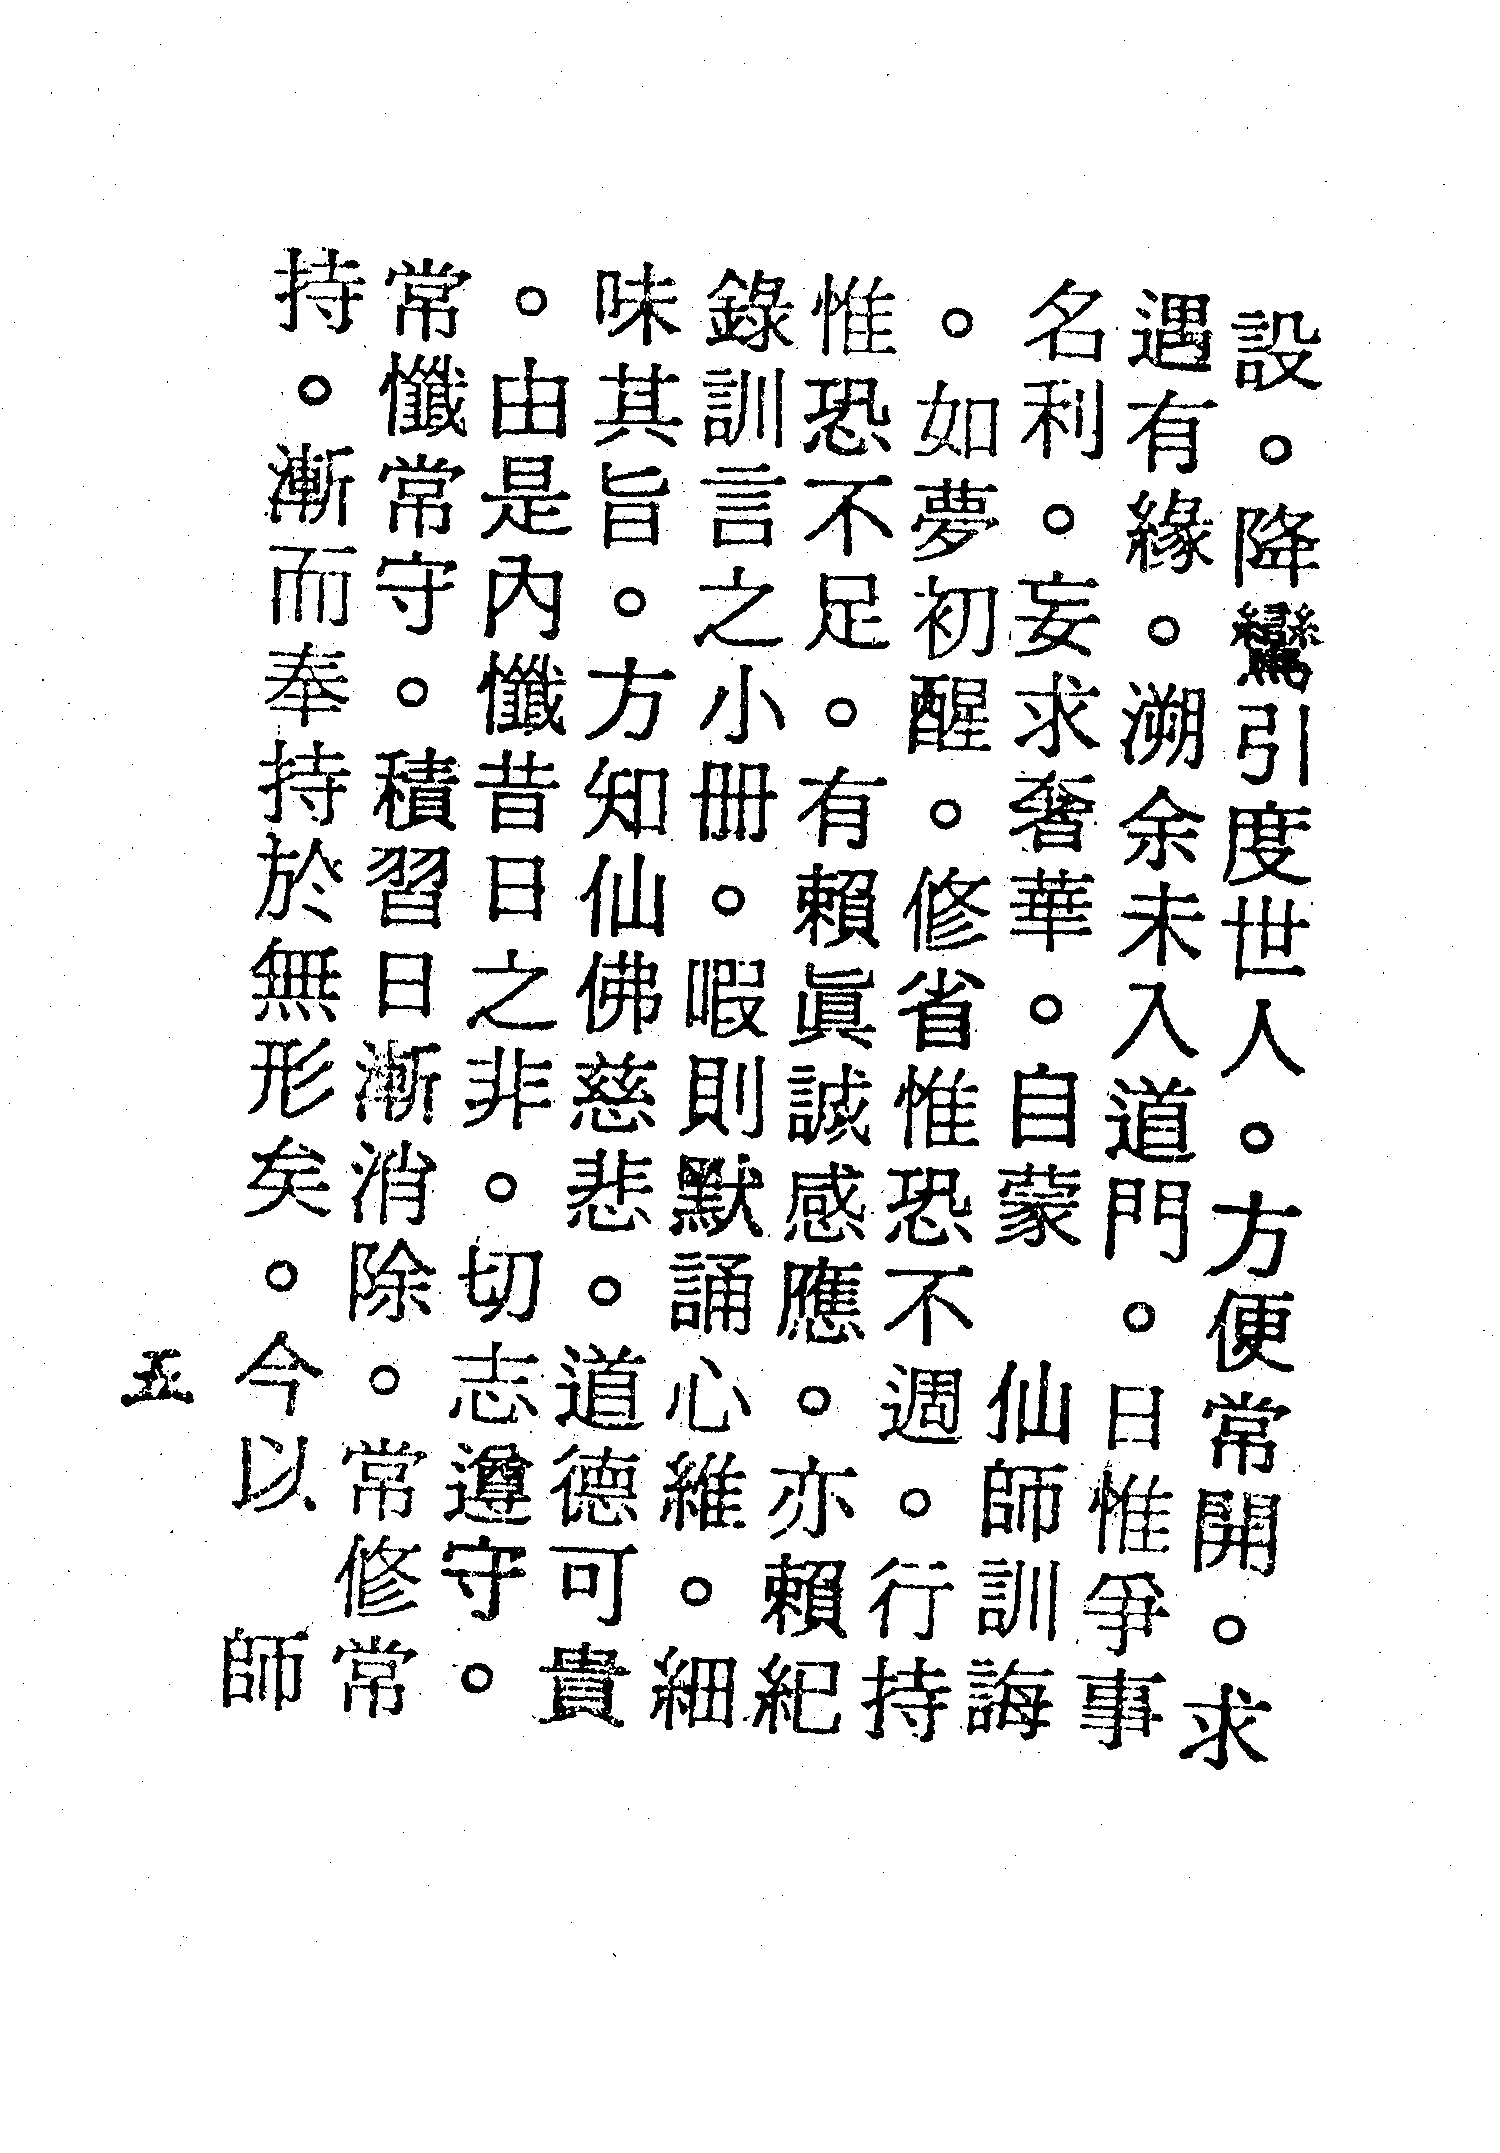 設。降鸞引度世人。方便常開。求
遇有緣。溯余未入道門。日惟爭事
名利。妄求奢華。自蒙　仙師訓誨
。如夢初醒。修省惟恐不週。行持
惟恐不足。有賴眞誠感應。亦賴紀
錄訓言之小冊。暇則默誦心維。細
味其旨。方知仙佛慈悲。道德可貴
。由是內懺昔日之非。切志遵守。
常懺常守。積習日漸消除。常修常
持。漸而奉持於無形矣。今以　師
五